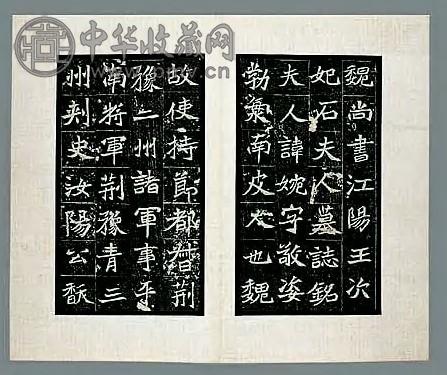 中华收藏网
魏尚書江陽王次
妃石夫人墓誌銘
夫人諱婉字敬姿
勃海南皮人也魏
故使持節都督荊
豫二州諸軍事平
南將軍荊豫青三
州刺史汝陽公馛